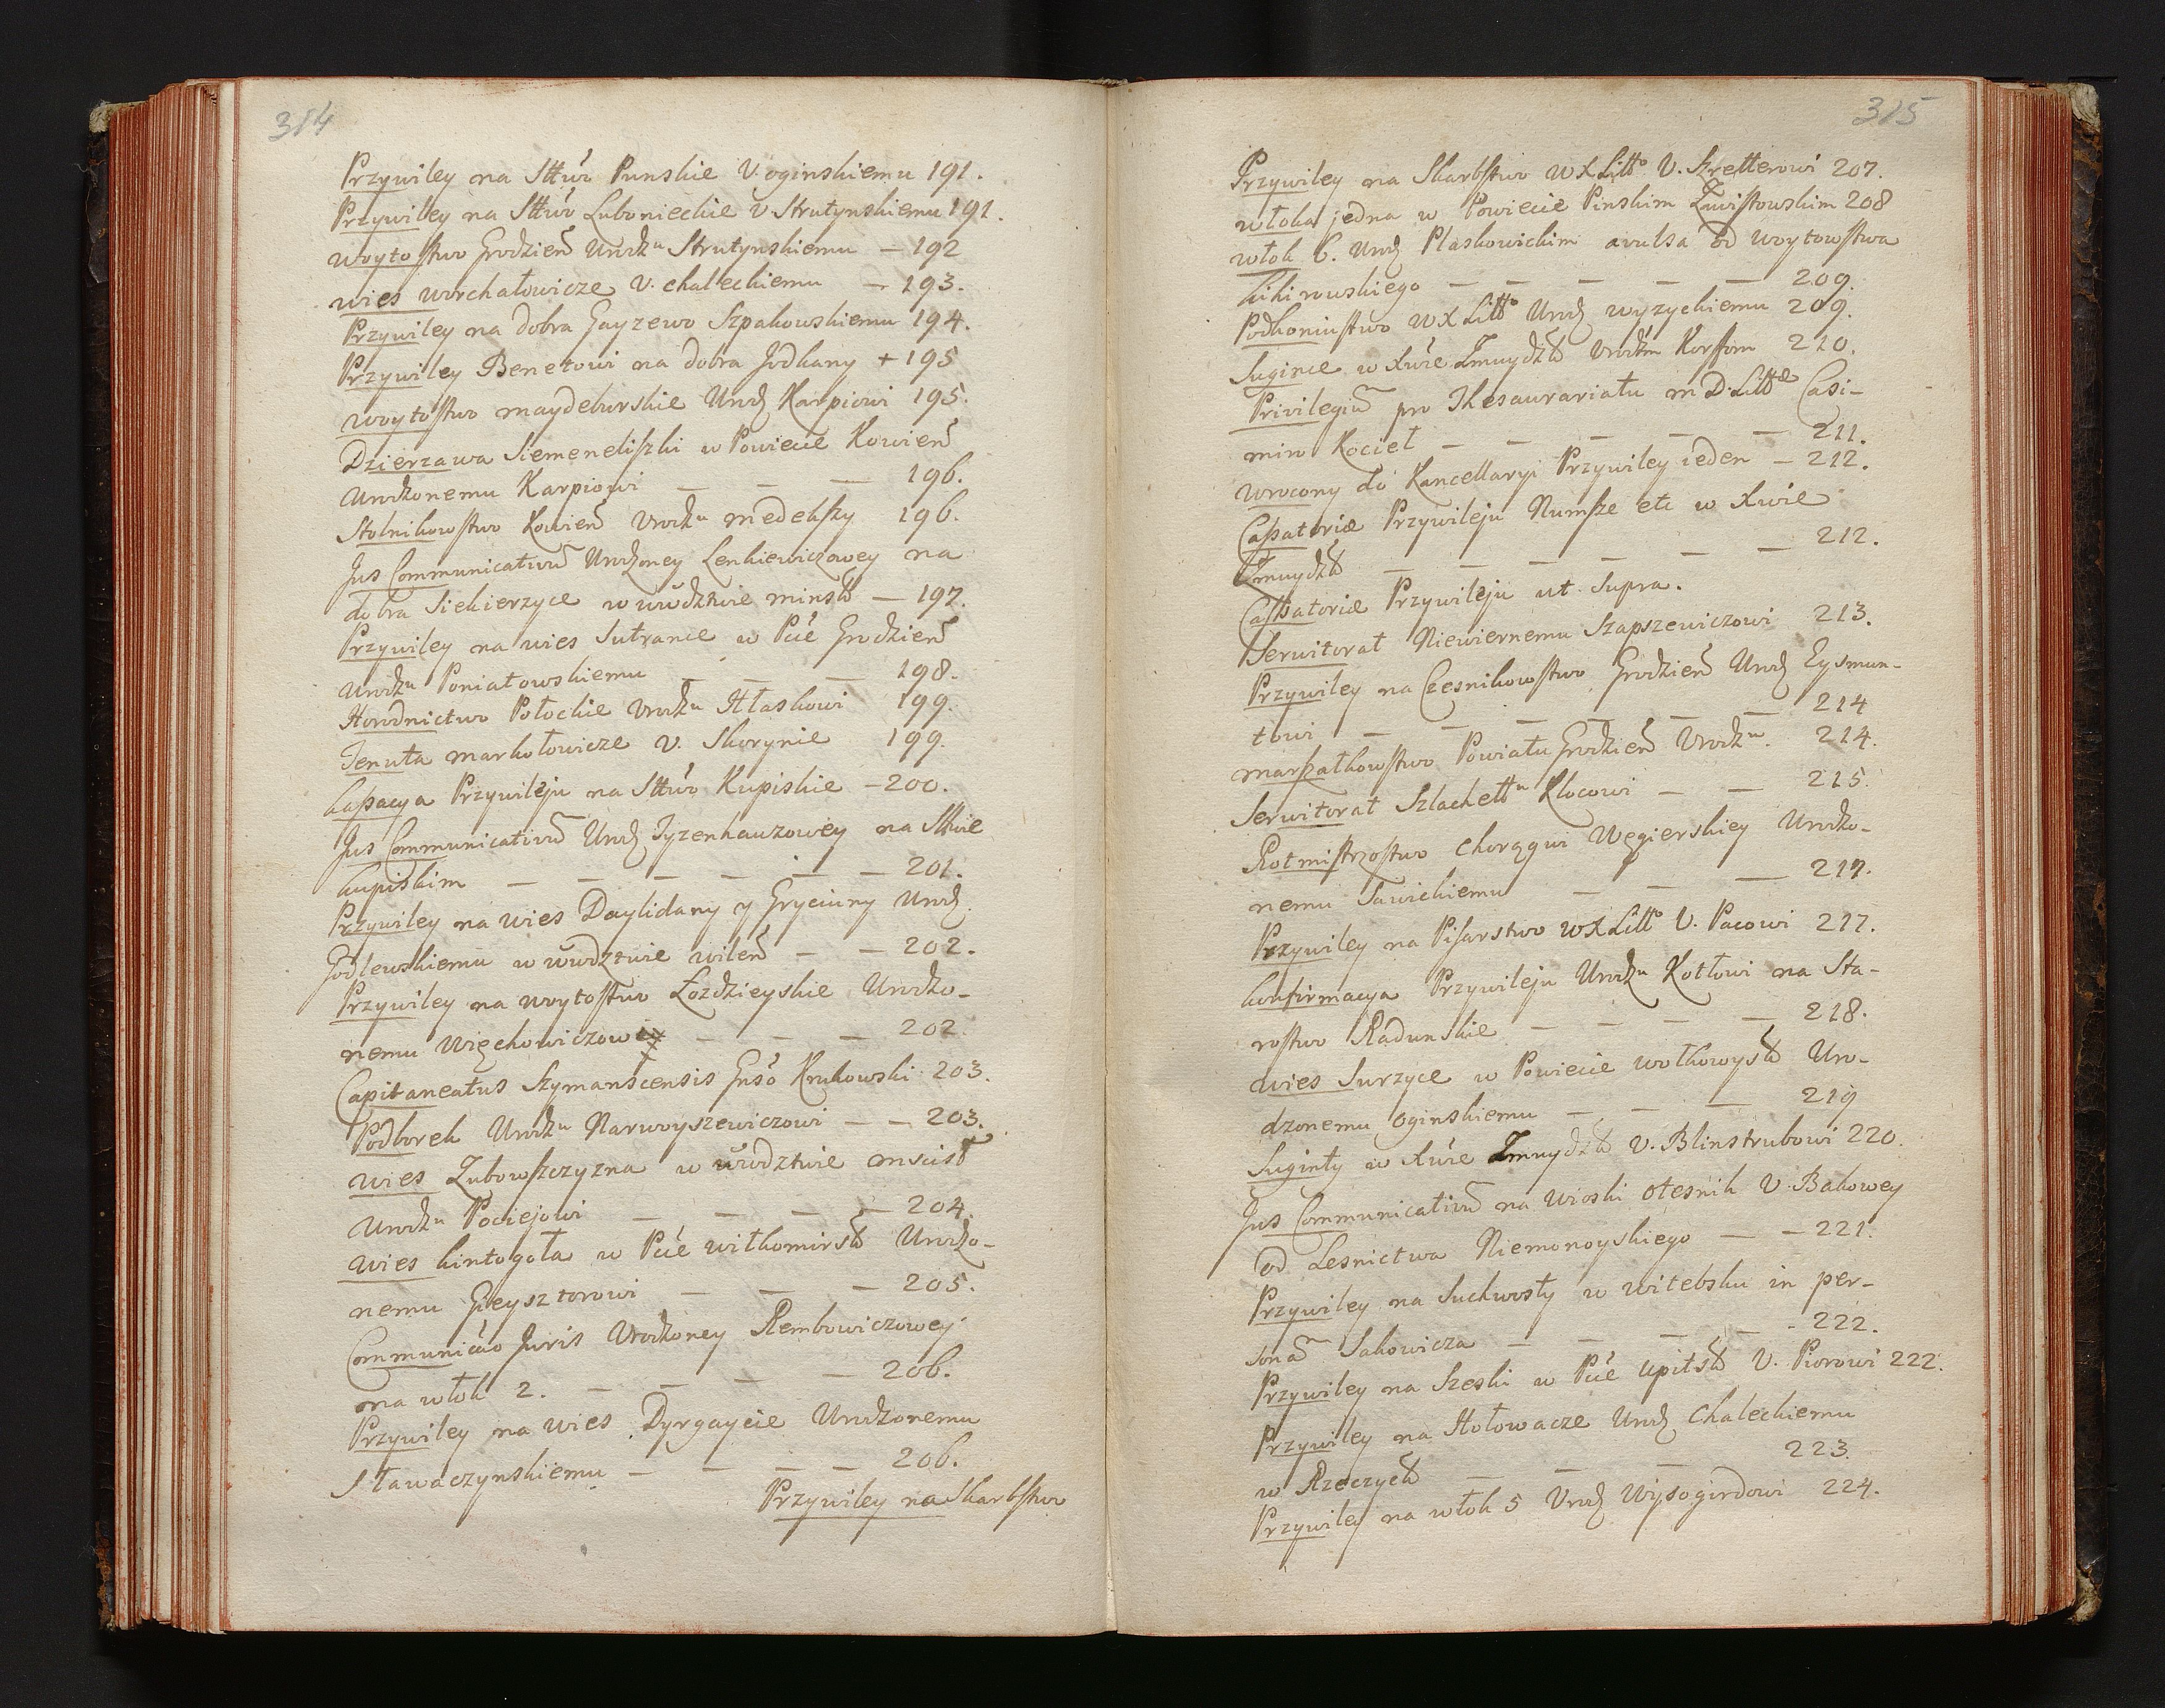 314
Przywiley na Sttwo Punskie V. oginskiemu 191.
Przywiley na Sttwo Lubonieckie V. Strutynskiemu 191.
woytostwo Grodzień Urodzu Strutynskiemu — 192
wies worchałowicze V. chaleckiemu — 193.
Przywiley na dobra Gayzewo Szpakowskiemu 194.
Przywiley Benetowi na dobra Jodkany + 195
woytostwo maydeburskie Urodz Karpiowi 195.
Dzierzawa Siemeneliszki w Powiecie Kowień
Urodzonemu Karpiowi — — — 196.
Stolnikowstwo Kowień Urodzu medekszy 196.
Jus Communicativu Urodzoney Lenkiewiczowey na
dobra Siekierzyce w wwdztwie minsk — 197.
Przywiley na wies Sutrance w Pcie Grodzień
Urodzu Poniatowskiemu — — — 198.
Horodnictwo Połockie Urodzu Hłaskowi 199.
Tenuta markołowicze V. Skorynie 199.
kassacya Przywileju na Sttwo Kupiskie — 200.
Jus Communicativu Urodz Tyzenhauzowey na Sttwie
kupiskim — — — — — — 201.
Przywiley na wies Daylidany y Gryciuny Urodz
Godlewskiemu w wwdztwie wileń — — 202.
Przywiley na woytostwo Łozdzieyskie Urodzo-
nemu Więckowiczowi — — — 202.
Capitaneatus Szymanscensis Gnso Krukowski 203.
Podborek Urodzu Narwoyszewiczowi — — 203.
wies Zubowszczyzna w wwdztwie mscisł
Urodzu Pociejowi — — — — 204.
wies kintogoła w Pcie wiłkomirsk Urodzo-
nemu Gieysztorowi — — — 205.
Communicao Juris Urodzoney Rembowiczowey
na włok 2. — — — — 206.
Przywiley na wies Dyrgaycie Urodzonemu
Sławaczynskiemu — — — — 206.
Przywiley na Skarbstwo
315
Przywiley na Skarbstwo WXLitto V. Szretterowi 207.
włoka jedna w Powiecie Pinskim Zwistowskim 208
włok 6. Urodz Plaskowickim avulsa od woytowstwa
kikirowskiego — — — — — 209.
Podkoniustwo WXLitto Urodz wyzyckiemu 209.
Sugince w Xwie Zmuydzk Urodzm Korssom 210.
Privilegiu pro Thesaurariatu M D Littae Casi-
miro Kocieł — — — — — 211.
Wrocony do Kancellaryi Przywiley ieden — 212.
Cassatoriae Przywileju Rumsze etc w Xwie
Zmuydzk — — — — — — 212.
Cassatoriae Przywileju ut Supra.
Serwitorat Niewiernemu Szapszewiczowi 213.
Przywiley na Czesnikowstwo Grodzień Urodz Eysmun-
towi — — — — — — 214
marszałkowstwo Powiatu Grodzień Urodzu 214.
Serwitorat Szlachettu Klocowi — — 215.
Rotmistrzostwo chorągwi Węgierskiey Urodzo-
nemu Sawickiemu — — — 217.
Przywiley na Pisarstwo WXLitto V. Pacowi 217.
konfirmacya Przywileju Urodzu Kotłowi na Sta-
rostwo Radunskie — — — — 218.
wies Surzyce w Powiecie wołkowysk Uro-
dzonemu oginskiemu — — — 219
Suginty w Xwie Zmuydzk V. Blinstrubowi 220.
Jus Communicativu na wioski Olesnik V. Bakowey
od Lesnictwa Niemonoyskiego — — 221.
Przywiley na Suchwosty w witebsku in per-
sona Sakowicza — — — — 222.
Przywiley na Szeski w Pcie upitsk V. Piorowi 222.
Przywiley na Hołowacze Urodz Chaleckiemu
w Rzeczyck — — — 223.
Przywiley na włok 5 Urodz Wysogirdowi 224.